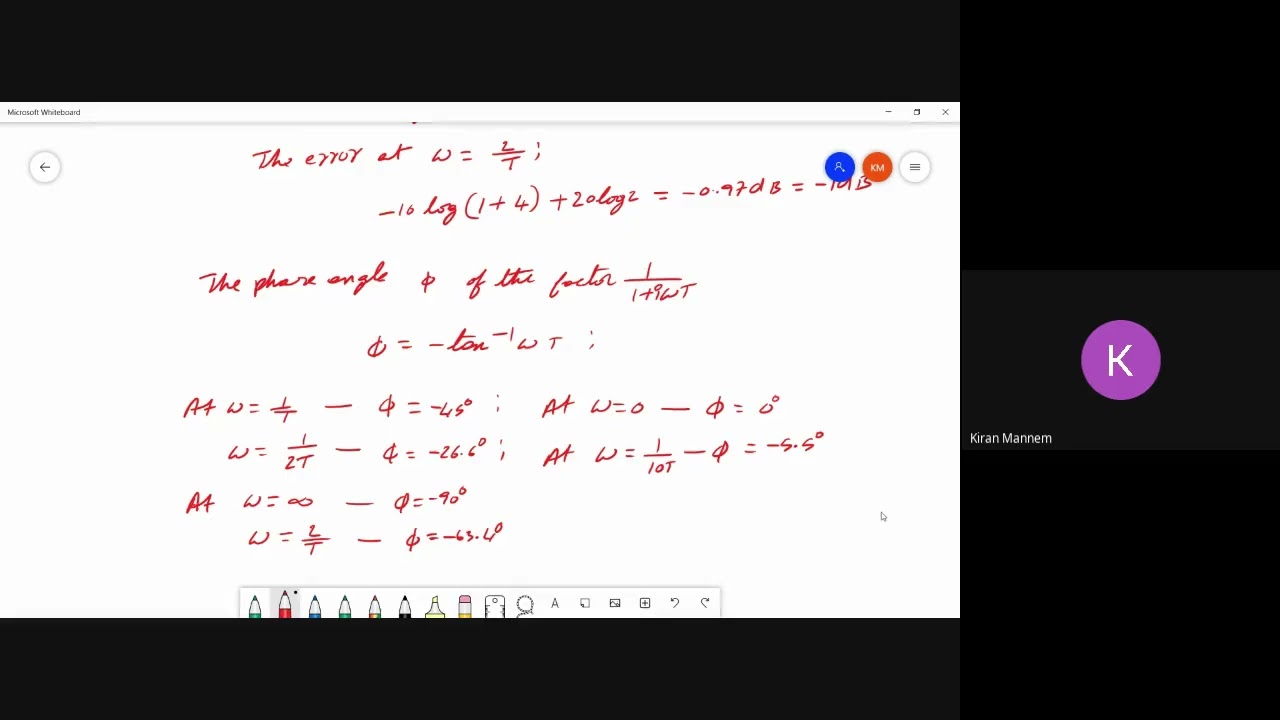 Microsoft Whiteboard
The error at ω = 2/T ;
KM
-10 log (1+4) + 20log2 = -0.97dB = -1dB
The phase angle φ of the factor 1/(1+jωT)
φ = -tan⁻¹ωT ;
K
At ω = 1/T — φ = -45° ; At ω=0 — φ = 0°
Kiran Mannem
ω = 1/2T — φ = -26.6° ; At ω = 1/10T — φ = -5.5°
At ω = ∞ — φ = -90°
ω = 2/T — φ = -63.4°
A